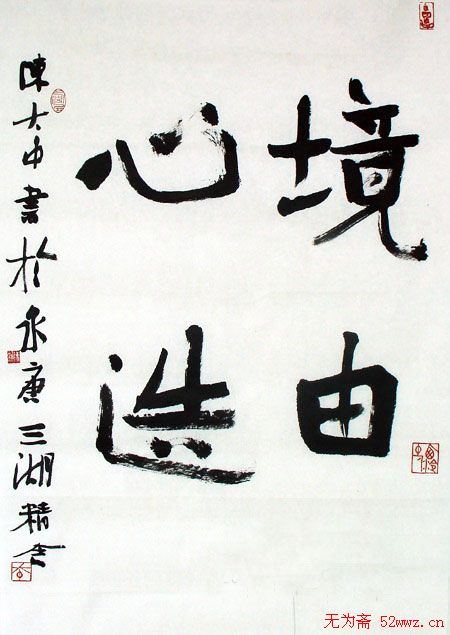 境由
心造
陳大中書於永康三湖精舍
无为斋 52wwz.cn